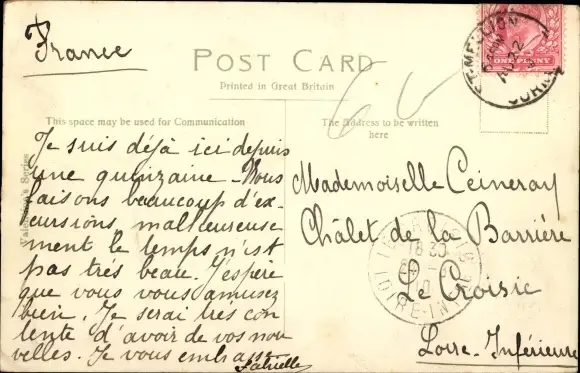 France
POST CARD
Printed in Great Britain
This space may be used for Communication
The Address to be written
here
Je suis déjà ici depuis
une quinzaine. Nous
faisons beaucoup d'ex-
cursions, malheureuse
ment le temps n'est
pas très beau. J'espère
que vous vous amusez
bien. Je serai très con
tente d'avoir de vos nou
velles. Je vous embrasse
Mademoiselle Ceineray
Châlet de la Barrière
Le Croisic
Loire-Inférieure
ONE PENNY
Valentine's Series